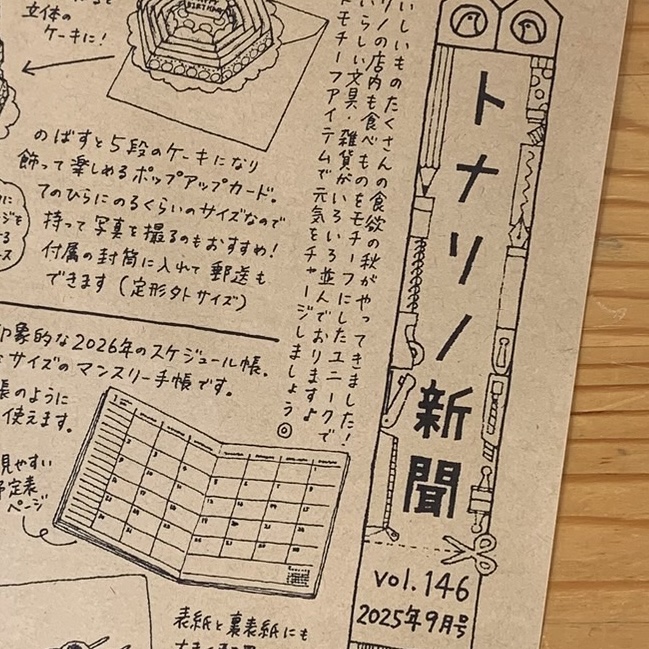 トナリノ新聞
vol.146
2025年9月号
いしいものたくさんの食欲の秋がやってきました！
リノの店内も食べものをモチーフにしたユニークで
いらしい文具・雑貨がいろいろ並んでおりますよ
モチーフアイテムで元気をチャージしましょう◎
立体の
ケーキに！
のばすと5段のケーキになり
飾って楽しめるポップアップカード。
てのひらにのるくらいのサイズなので
持って写真を撮るのもおすすめ！
付属の封筒に入れて郵送も
できます（定形外サイズ）
印象的な2026年のスケジュール帳。
サイズのマンスリー手帳です。
帳のように
使えます。
見やすい
予定表
ページ
表紙と裏表紙にも